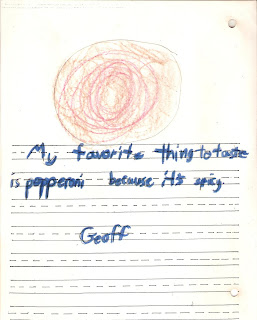 My favorite thing to taste
is pepperoni because it's spicy.
Geoff